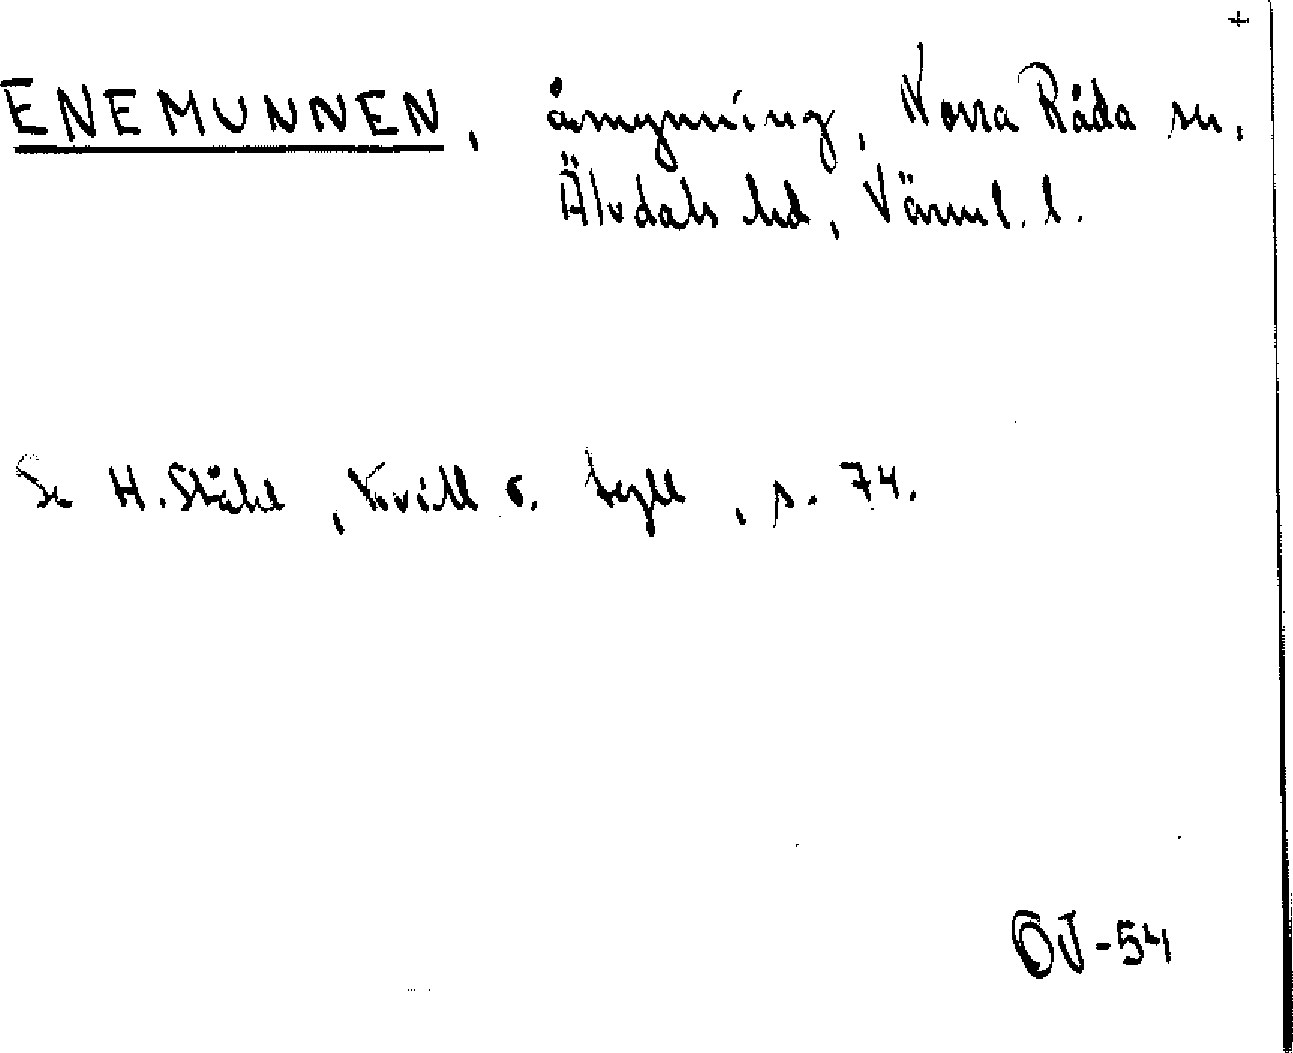 +
ENEMUNNEN, åmynning, Norra Råda sn,
Älvdals hd, Värml. l.
Se H. Ståhl, Kvill o. tyll, s. 74.
OJ-54